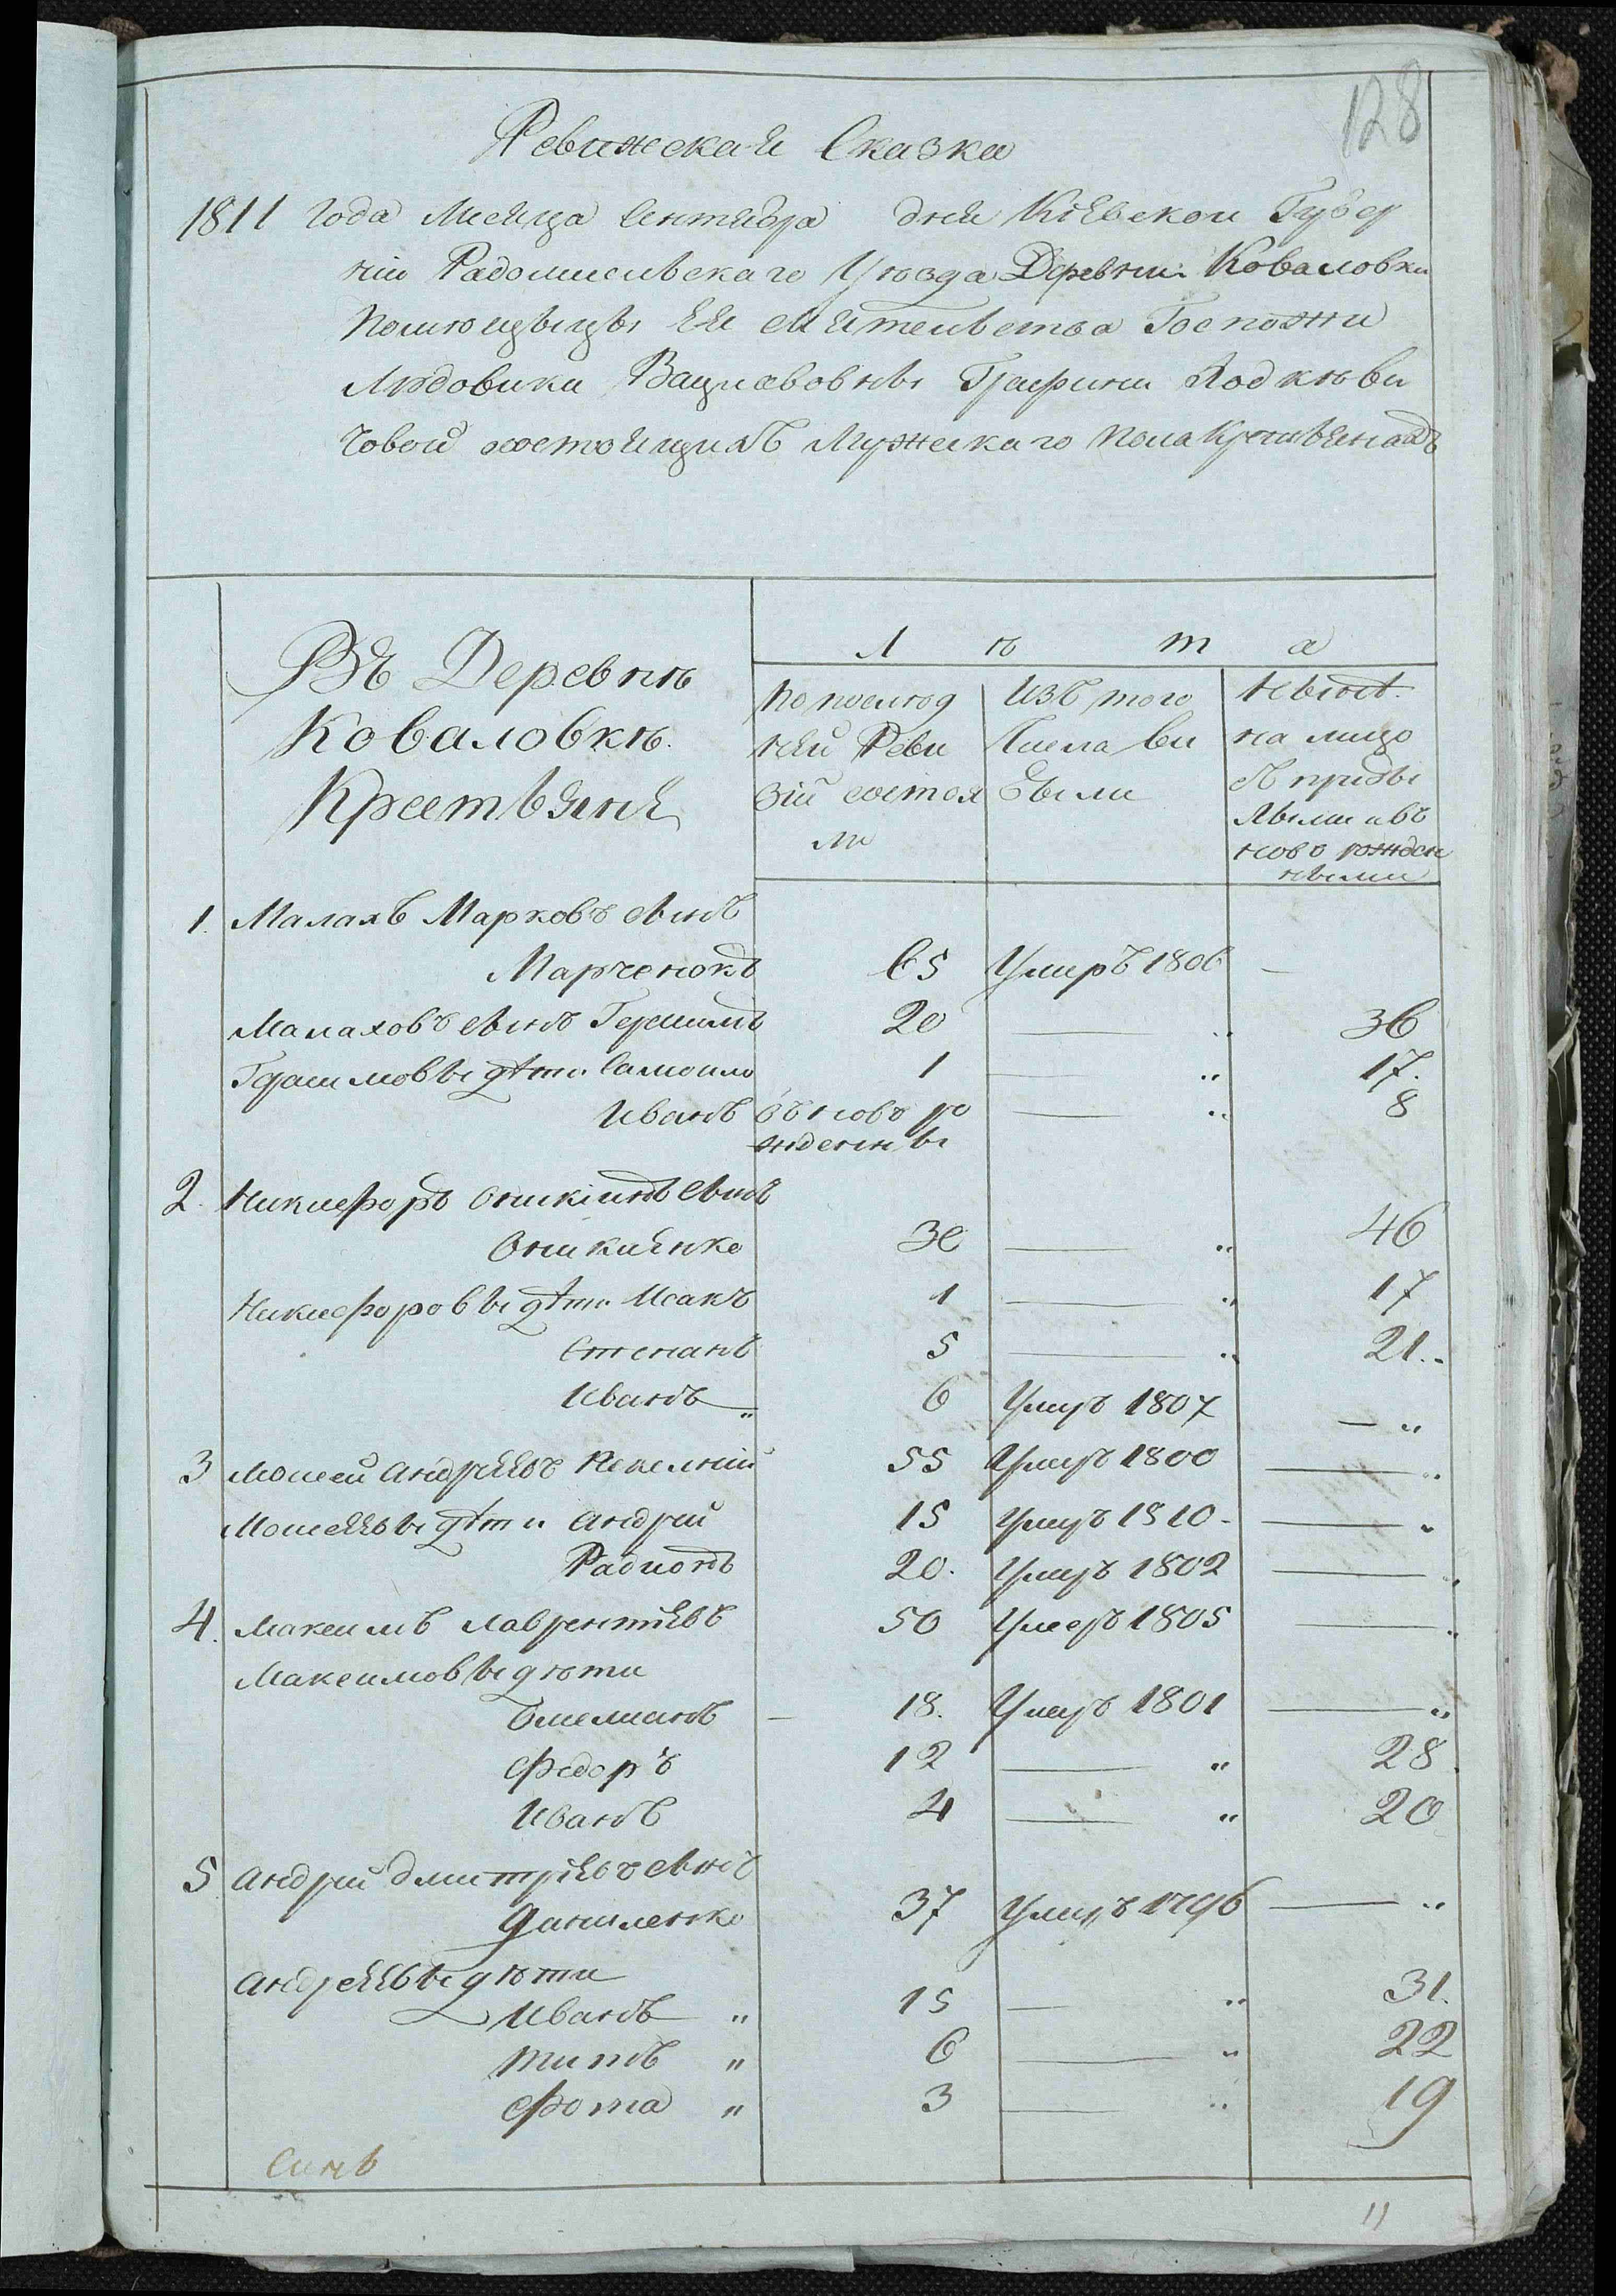 128
Ревижская Сказка
1811 Года Месяца Сентября дня Кіевской Губер
ніи Радомисльскаго Уѣзда Деревни Коваловки
Помѣщыцы Ея Сіятельства Госпожи
Людовики Вацлавовны Графини Ходкѣви
човой состоящихъ Мужескаго Пола Крестьянахъ
Въ Деревнѣ
Коваловкѣ.
Крестьяне
Л ѣ т а
По послѣд
ней Реви
зіи состоя
ло
Изъ того
Числа ви
были
нынѣ
на лицо
с прибы
лыми и въ
ново рожден
ными
1. Малахъ Марковъ сынъ
Марченокъ 65 Умиръ 1806 —
Малаховъ сынъ Герасимъ 20 — „ 36
Герасимовы дѣти Самоило 1 — „ 17.
Иванъ въ новъ ро — „ 8
жденны
2. Никифоръ Оникіинъ сынъ
Оникіенко 30 — „ 46
Никифоровы дѣти Исакъ 1 — „ 17
Степанъ 5 — „ 21..
Иванъ „ 6 Умеръ 1807 — „
3 Моисей Андрѣевъ 55 Умеръ 1800 — „
Моисеевы дѣти Андрій 15 Умеръ 1810. — „
Радионъ 20. Умеръ 1802 — „
4. Максимъ Лаврентіевъ 50 Умеръ 1805 — „
Максимовы дѣти
Емелианъ — 18. Умеръ 1801 — „
Федоръ 12 — „ 28.
Иванъ 4 — „ 20
5 Андрій Дмитріевъ сынъ
Даниленко 37 Умеръ 1796 — „
Андреевы дѣти
Иванъ „ 15 — „ 31.
Титъ „ 6 — „ 22
Фома „ 3 — „ 19
11